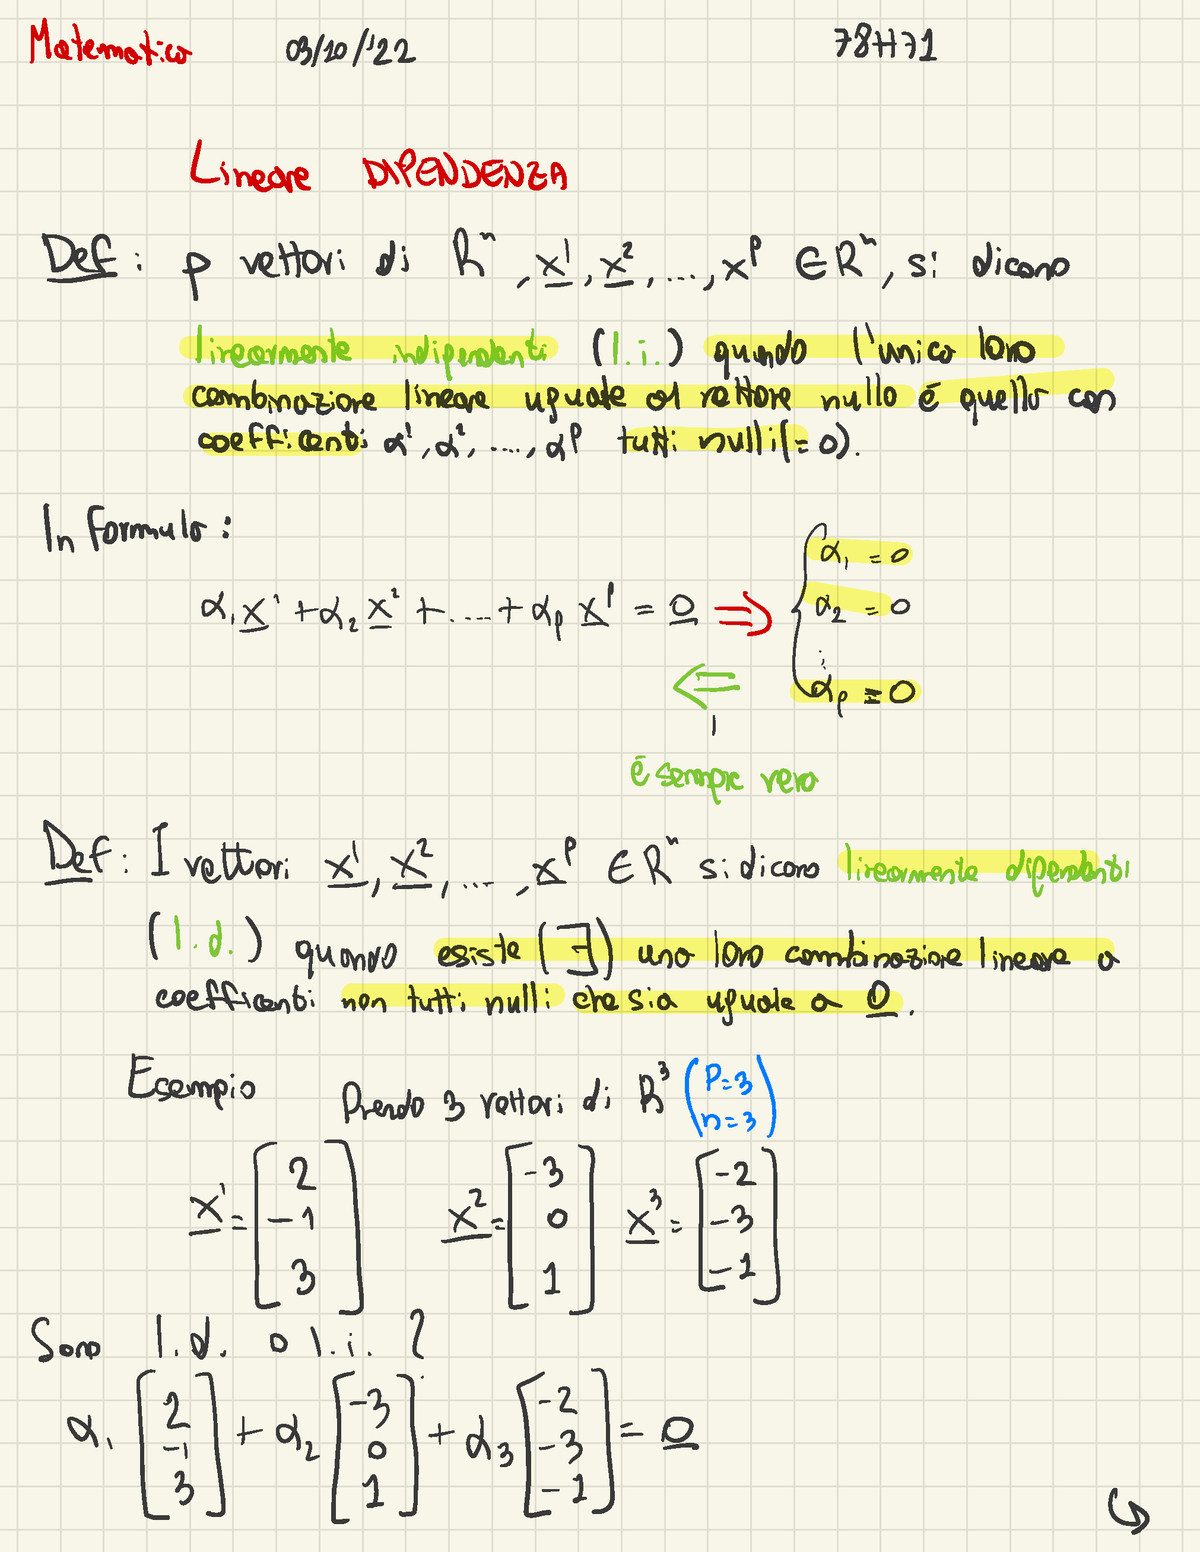 Matematica 03/10/'22 78H71
Lineare DIPENDENZA
Def: p vettori di Rⁿ, x¹, x², ..., xᵖ ∈ Rⁿ, si dicono
linearmente indipendenti (l.i.) quando l'unica loro
combinazione lineare uguale al vettore nullo é quella con
coefficenti α¹, α², ..., αᵖ tutti nulli (= 0).
In formula:
α₁x¹ + α₂x² + .... + αₚxᵖ = 0 ⇒ { α₁ = 0
α₂ = 0
⋮
αₚ = 0
⇐
é sempre vera
Def: I vettori x¹, x², ..., xᵖ ∈ Rⁿ si dicono linearmente dipendenti
(l.d.) quando esiste (∃) una loro combinazione lineare a
coefficenti non tutti nulli che sia uguale a 0.
Esempio Prendo 3 vettori di R³ (p=3
n=3)
x¹ = [2 -1 3] x² = [-3 0 1] x³ = [-2 -3 -1]
Sono l.d. o l.i. ?
α₁ [2 -1 3] + α₂ [-3 0 1] + α₃ [-2 -3 -1] = 0